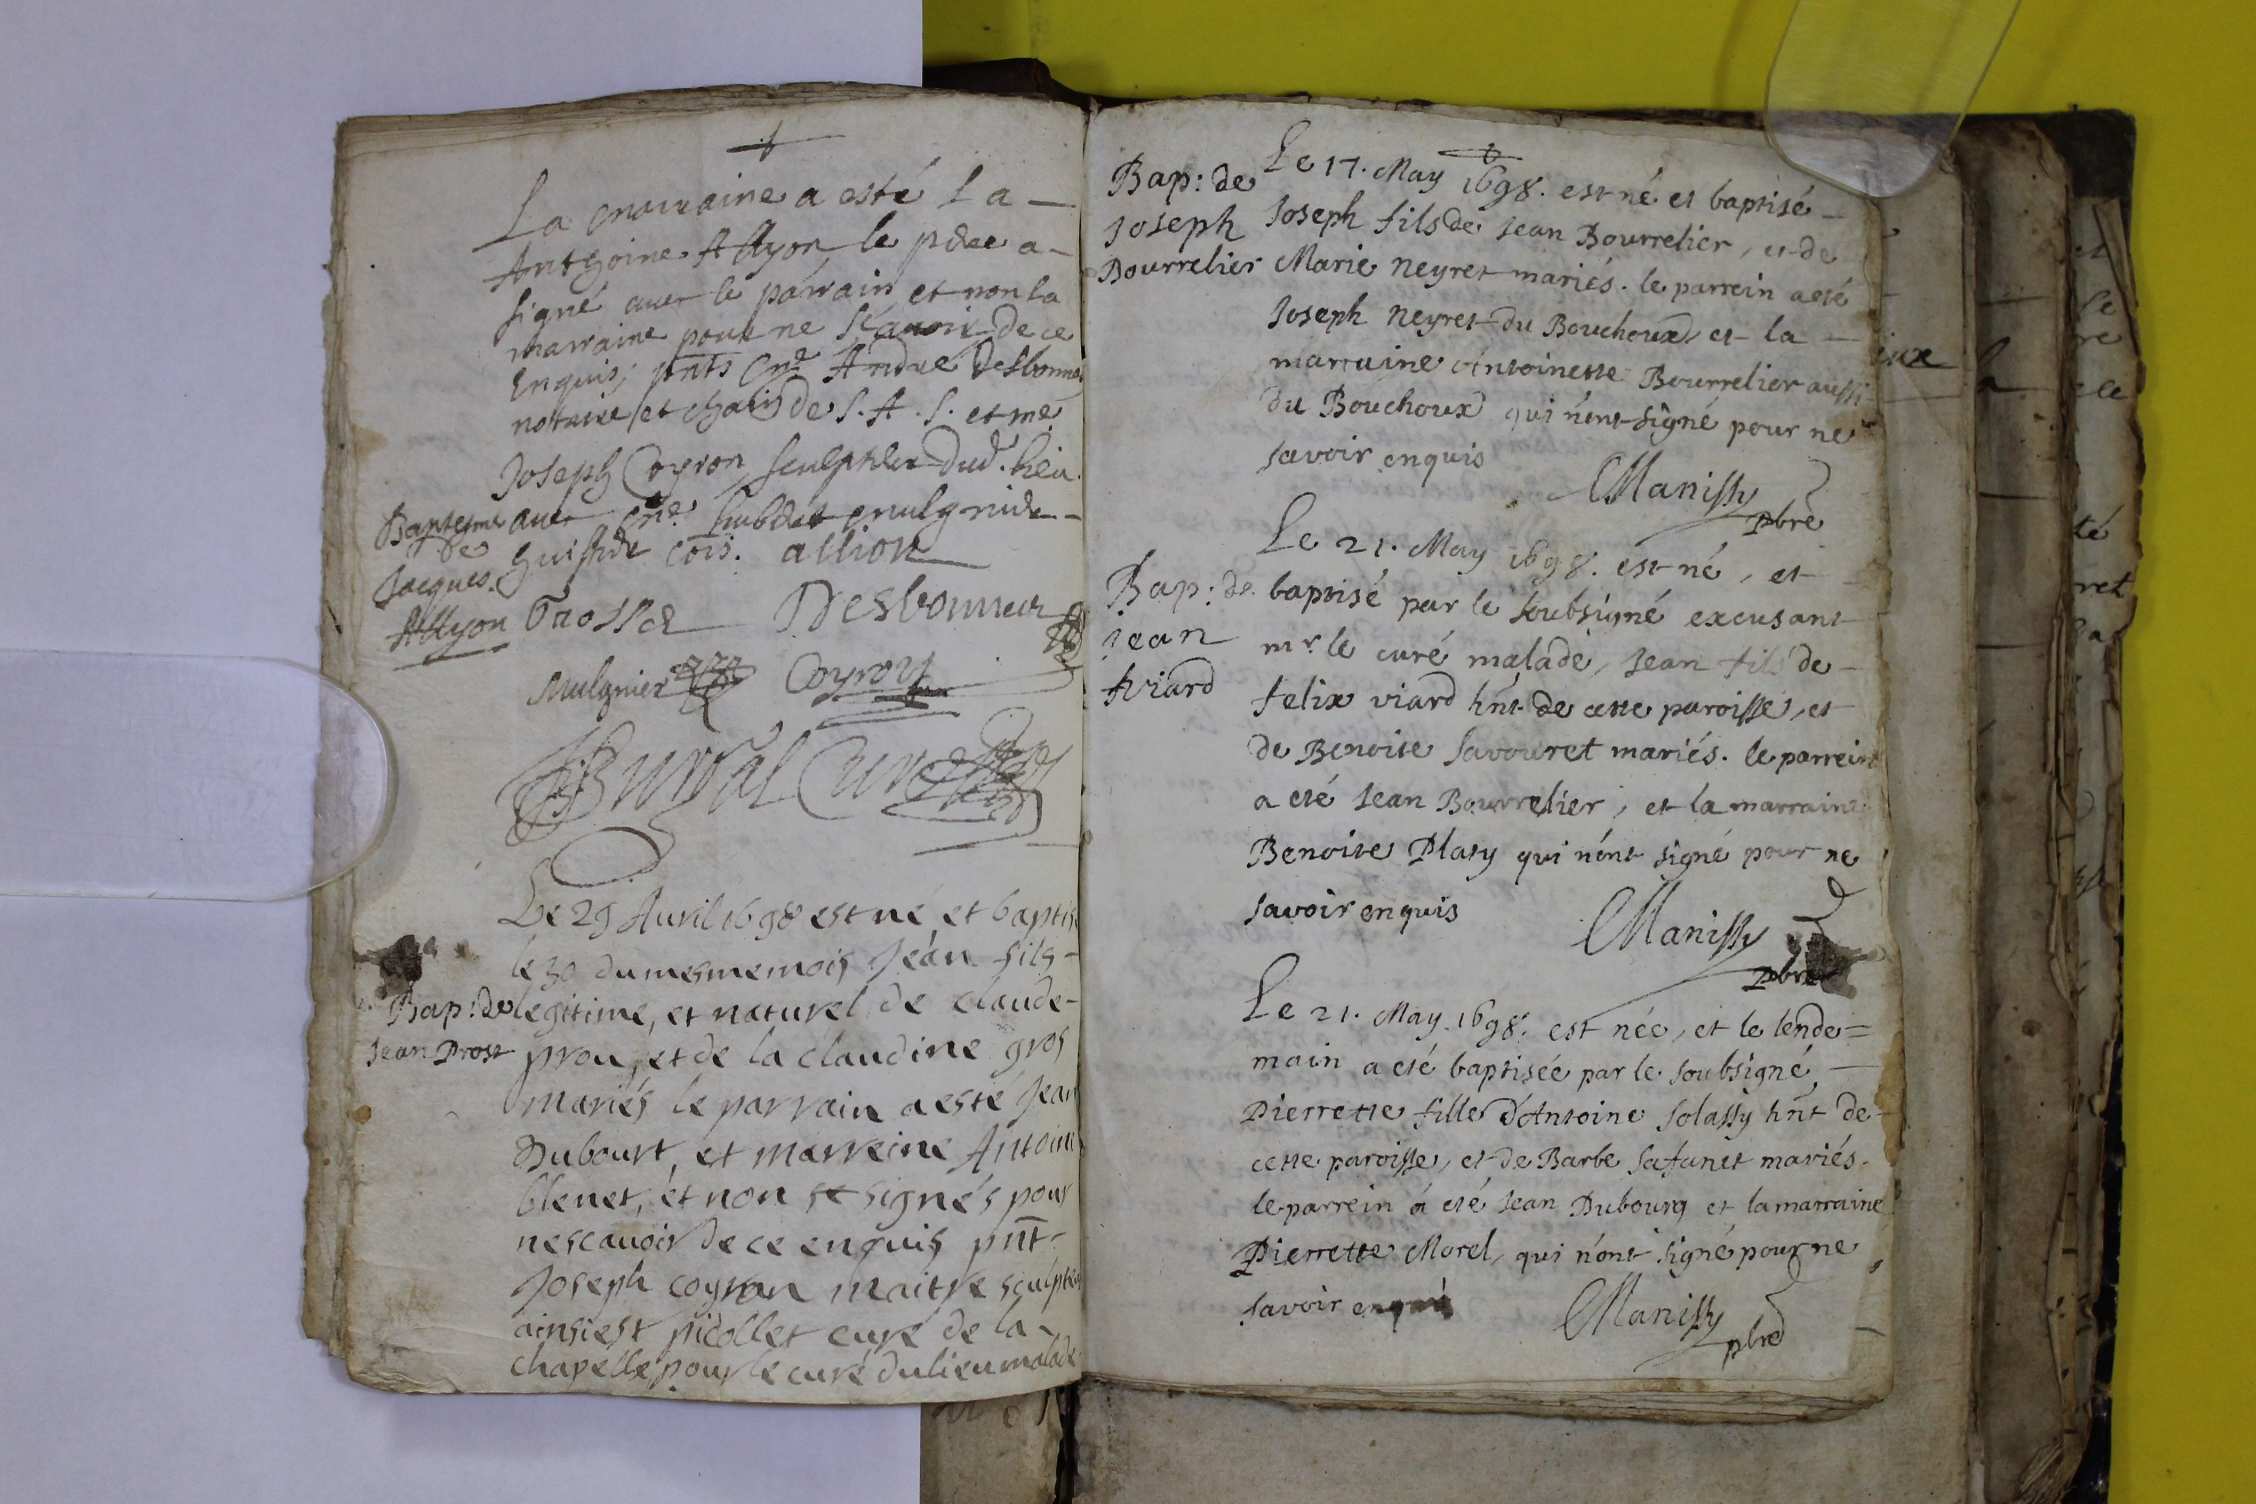 La marraine a esté La
Anthoine Allyon le pere a
signé avec le parrain et non la
marraine pour ne scavoir de ce
enquis; pnts André Desbonnes
notaire et de S. A. S. et me
Joseph Coyron sculpteur dud. lieu
Baptesme avec
de
Jacques allion
Allyon Trosset Desbonnes
Mulgnier Coyron
Burdal Curé
Le 29 Avril 1698 est né et baptisé
le 30 du mesme mois Jean fils
Bap: de legitime, et naturel de claude
Jean Prost prou, et de la claudine gros
mariés le parrain a esté Jean
Dubourt, et marreine Antoine
blenet, et non st signés pour
ne scavoir de ce enquis pnt
Joseph coyron maitre sculpteur
ainsi est picollet curé de la
chapelle pour le curé du lieu malade
Le 17. May 1698. est né et baptisé
Bap: de Joseph fils de Jean Bourrelier, et de
Joseph Marie Neyret mariés. le parrein a eté
Bourrelier Joseph Neyret du Bouchoux et la
marraine Antoinette Bourrelier aussi
du Bouchoux qui n'ont signé pour ne
savoir enquis
Manissy
pbre
Le 21. May 1698. est né, et
Bap: de baptisé par le soubsigné excusant
Jean mr. le curé malade, Jean fils de
Viard felix viard hnt de cette paroisse, et
de Benoite Savouret mariés. le parrein
a eté Jean Bourrelier, et la marraine
Benoite Platy qui n'ont signé pour ne
savoir enquis
Manissy
pbre
Le 21. May 1698. est née, et le lende=
main a eté baptisée par le soubsigné
Pierrette fille d'Antoine Solassy hnt de
cette paroisse, et de Barbe Safanet mariés.
le parrein a eté Jean Dubourg et la marraine
Pierrette Morel, qui n'ont signé pour ne
savoir enquis
Manissy
pbre